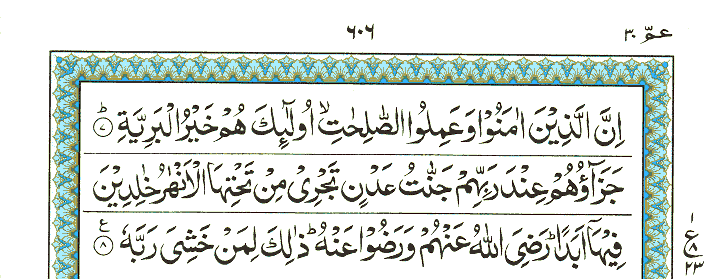 عمّ ٣٠
٦٠٦
اِنَّ الَّذِيْنَ اٰمَنُوْا وَعَمِلُوا الصّٰلِحٰتِ ۙ اُولٰٓئِكَ هُمْ خَيْرُ الْبَرِيَّةِ ؕ ﴿٧﴾
جَزَآؤُهُمْ عِنْدَ رَبِّهِمْ جَنّٰتُ عَدْنٍ تَجْرِيْ مِنْ تَحْتِهَا الْاَنْهٰرُ خٰلِدِيْنَ
فِيْهَاۤ اَبَدًا ؕ رَضِيَ اللّٰهُ عَنْهُمْ وَرَضُوْا عَنْهُ ؕ ذٰلِكَ لِمَنْ خَشِيَ رَبَّهٗ ﴿٨﴾ ع
١
ع
٨
٢٣